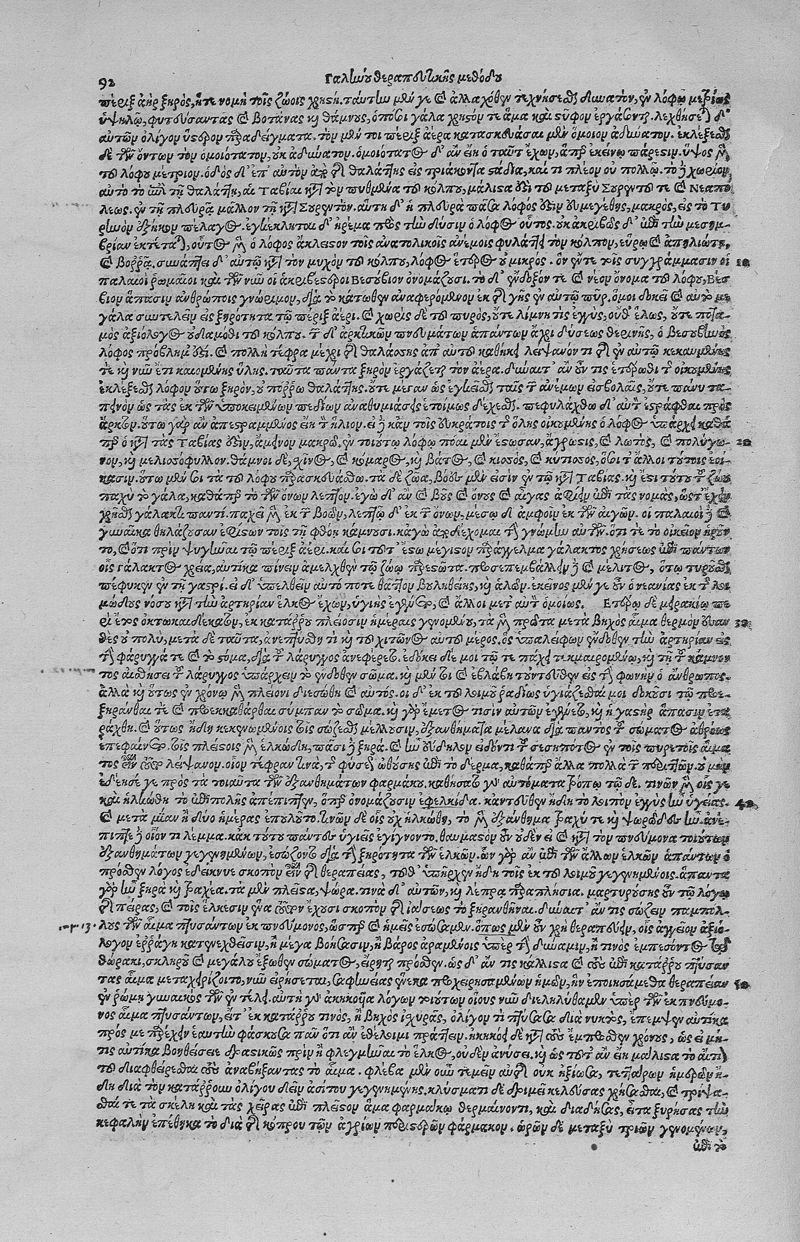 92 Γαλίωου θεραπευτικῆς μεθόδου
πέριξ ἀὴρ ξηρὸς, ἥτε νομὴ τοῖς ζώοις χρηστή. ταύτην μὲν γε καὶ ἀλλαχόθεν τεχνήσεσθαι δυνατὸν, ἐν λόφῳ μετρίως
ὑψηλῷ, φυτεύσαντας καὶ βοτάνας καὶ θάμνους, ὁπόσοι γάλα χρηστόν τε ἅμα καὶ στῦφον ἐργάσονται. λεχθήσεται δ'
αὐτῶν ὀλίγον ὕστερον παραδείγματα. τὸν μὲν τοι πέριξ ἀέρα κατασκευάσαι μὲν ὅμοιον ἀδύνατον. ἐκλέξασθαι
δὲ τῶν ὄντων τὸν ὁμοιότατον, οὐκ ἀδύνατον. ὁμοιότατος δ' ἂν εἴη ὁ ταῦτ' ἔχων, ἅπερ ἐκείνῳ πάρεστιν. ὕψος μὲν
τοῦ λόφου μέτριον. ὁδὸς δ' ἐπ' αὐτὸν ἀπὸ τῆς θαλάττης εἰς τριάκοντα στάδια, καί τι πλέον οὐ πολλῷ. τὸ χωρίον
αὐτὸ τὸ ἐπὶ τῇ θαλάττῃ, αἱ Ταβίαι κατὰ τὸν πυθμένα τοῦ κόλπου, μάλιστά ἐστι τοῦ μεταξὺ Συρέντου τε καὶ Νεαπό
λεως. ἐν τῇ πλευρᾷ μᾶλλον τῇ κατὰ Σύρεντον. αὕτη δ' ἡ πλευρὰ πᾶσα λόφος ἐστὶν εὐμεγέθης, μακρὸς, εἰς τὸ Τυῤ
ῥηνὸν ἐξήκων πέλαγος. ἐγκέκλιται δ' ἠρέμα πρὸς τὴν δύσιν ὁ λόφος οὗτος. οὐκ ἀκριβῶς δ' ἐπὶ τὴν μεσημ-
βρίαν ἐκτέταται, οὗτος μὲν ὁ λόφος ἄκλειστον τοῖς ἀνατολικοῖς ἀνέμοις φυλάττει τὸν κόλπον, εὔρῳ καὶ ἀπηλιώτῃ
καὶ βορρᾷ. συνάπτει δ' αὐτῷ κατὰ τὸν μυχὸν τοῦ κόλπου, λόφος ἕτερος οὐ μικρὸς. ὃν ἔν τε τοῖς συγγράμμασιν οἱ 10
παλαιοὶ ῥωμαῖοι καὶ τῶν νῦν οἱ ἀκριβέστεροι Βεσούβιον ὀνομάζουσι. τὸ δ' ἔνδοξόν τε καὶ νέον ὄνομα τοῦ λόφου, Βέσ
βιον ἅπασιν ἀνθρώποις γνώριμον, διὰ τὸ κάτωθεν ἀναφερόμενον ἐκ τῆς γῆς ἐν αὐτῷ πῦρ. ὅ μοι δοκεῖ καὶ αὐτὸ με
γάλα συντελεῖν εἰς ξηρότητα τῷ πέριξ ἀέρι. καὶ χωρὶς δὲ τοῦ πυρὸς, οὔτε λίμνη τις ἐγγὺς, οὔθ' ἕλος, οὔτε ποτα-
μὸς ἀξιόλογος οὐδαμόθι τοῦ κόλπου. τῶν δ' ἀρκτικῶν πνευμάτων ἁπάντων ἄχρι δύσεως θερινῆς, ὁ Βεσουβινὸς
λόφος πρόβλημά ἐστι. καὶ πολλὴ τέφρα μέχρι τῆς θαλάσσης ἀπ' αὐτοῦ καθήκει λείψανόν τι τῆς ἐν αὐτῷ κεκαυμένης
τε καὶ νῦν ἔτι καιομένης ὕλης. ταῦτα πάντα ξηρὸν ἐργάζεται τὸν ἀέρα. δύναιτ' ἂν οὖν τις ἑτέρωθι τῆς οἰκουμένης
ἐκλέξασθαι λόφον οὕτω ξηρὸν, οὐ πόρρω θαλάττης. οὔτε μέγαν ὡς ἐγκεῖσθαι ταῖς τῶν ἀνέμων εἰσβολαῖς, οὔτε πάνυ τα-
πεινὸν ὡς τὰς ἐκ τῶν ὑποκειμένων πεδίων ἀναθυμιάσεις ἑτοίμως δέχεσθαι. πεφυλάχθω δ' αὐτῷ ἐστράφθαι πρὸς
ἄρκτον. οὕτω γὰρ ἂν ἀπεστραμμένος εἴη τὸν ἥλιον. εἰ δὲ κἂν τοῖς εὐκράτοις τῆς ὅλης οἰκουμένης ὁ λόφος ὑπάρχει καθά
περ ὁ κατὰ τὰς Ταβίας ἐστὶν, ἄμεινον μακρῷ. ἐν τοιούτῳ λόφῳ πόαι μὲν ἔστωσαν, ἄγρωστις, καὶ λωτὸς, καὶ πολύγω- 20
νον, καὶ μελισσόφυλλον. θάμνοι δὲ, σχῖνος, καὶ κόμαρος, καὶ βάτος, καὶ κισσὸς, καὶ κύτισος, ὅσοι τ' ἄλλοι τούτοις ἐοί-
κασιν. οὕτω μέν σοι τὰ τοῦ λόφου παρεσκευάσθω. τὰ δὲ ζῶα, βόες μέν εἰσιν ἐν τῷ κατὰ Ταβίας. καὶ ἔστι τοῦ ζώου
παχὺ τὸ γάλα, καθάπερ τὸ τῶν ὄνων λεπτόν. ἐγὼ δ' ἂν καὶ βοῦς καὶ ὄνους καὶ αἶγας ἀφείην ἐπὶ τὰς νομὰς, ὥστ' ἔχειν
χρῆσθαι γάλακτι παντὶ. παχεῖ μὲν ἐκ τῶν βοῶν, λεπτῷ δ' ἐκ τῶν ὄνων, μέσῳ δ' ἀμφοῖν ἐκ τῶν αἰγῶν. οἱ παλαιοὶ δὲ καὶ
γυναῖκα θηλάζουσαν ἐφίστων τοῖς τῇ φθόῃ κάμνουσι. κἀγὼ ἀποδέχομαι τὴν γνώμην αὐτῶν. ὅτι τε τὸ οἰκεῖον ᾑροῦν
το, καὶ ὅτι πρὶν ψυγῆναι τῷ πέριξ ἀέρι. καί σοι τοῦτ' ἔστω μέγιστον παράγγελμα γάλακτος χρήσεως ἐπὶ πάντων
οἷς γάλακτος χρεία, αὐτίκα πίνειν ἀμελχθὲν τῷ ζώῳ παρεστῶτα. προσεπεμβάλλειν δὲ καὶ μέλιτος, ὅτῳ τυροῦσθαι
πέφυκεν ἐν τῇ γαστρί. εἰ δ' ὑπελθεῖν αὐτό ποτε θᾶττον βουληθείης, καὶ ἁλῶν. ἐκεῖνος μὲν γε οὖν ὁ νεανίας ἐκ τοῦ λοι
μώδους νόσου κατὰ τὴν ἀρτηρίαν ἕλκος ἔχων, ὑγιὴς ἐγένετο, καὶ ἄλλοι μετ' αὐτὸν ὁμοίως. Ἑτέρῳ δὲ μειρακίῳ πε
ρὶ ἔτος ὀκτωκαιδέκατον, ἐκ κατάρρου πλείοσιν ἡμέραις γενομένου, τὰ μὲν πρῶτα μετὰ βηχὸς αἷμα θερμὸν εὐαν 30
θὲς οὐ πολὺ, μετὰ δὲ ταῦτα, ἀνεπτύσθη τι καὶ τοῦ χιτῶνος αὐτοῦ μέρος. ὃς ὑπαλείφων ἔνδοθεν τὴν ἀρτηρίαν εἰς
τὴν φάρυγγά τε καὶ τὸ στόμα, διὰ τοῦ λάρυγγος ἀνεφέρετο. ἐδόκει δέ μοι τῷ τε πάχει τεκμαιρομένῳ, καὶ τῇ τοῦ κάμνον
τος αἰσθήσει τοῦ λάρυγγος ὑπάρχειν τὸ ἔνδοθεν σῶμα. καὶ μέν τοι καὶ ἐβλάβη τοὐντεῦθεν εἰς τὴν φωνὴν ὁ ἄνθρωπος.
ἀλλὰ καὶ οὗτος ἐν χρόνῳ μὲν πλείονι διεσώθη καὶ αὐτός. οἱ δ' ἐκ τοῦ λοιμοῦ ῥαδίως ὑγιάζεσθαί μοι δοκοῦσι τῷ προε-
ξηράνθαι τε καὶ προκεκαθάρθαι σύμπαν τὸ σῶμα. καὶ γὰρ ἔμετός τισιν αὐτῶν ἐγένετο, καὶ ἡ γαστὴρ ἅπασιν ἐτα
ράχθη. καὶ οὕτως ἤδη κεκενωμένοις τοῖς σώζεσθαι μέλλουσιν, ἐξανθήματα μέλανα διὰ παντὸς τοῦ σώματος ἀθρόως
ἐπεφαίνετο. τοῖς πλείστοις μὲν ἑλκώδη, πᾶσι δὲ ξηρά. καὶ ἦν εὔδηλον ἰδόντι τοῦ σεσηπότος ἐν τοῖς πυρετοῖς αἵμα
τος εἶναι τοῦτο λείψανον. οἷον τέφραν τινὰ, τῆς φύσεως ὠθούσης ἐπὶ τὸ δέρμα, καθάπερ ἄλλα πολλὰ τῶν περιττῶν. οὐ μὴν
ἐδέησέ γε πρὸς τὰ τοιαῦτα τῶν ἐξανθημάτων φαρμάκου. καθίστατο γὰρ αὐτόματα τρόπῳ τῷδε. τινῶν μὲν οἷς γε
καὶ ἡλκώθη τὸ ἐπιπολῆς ἀπέπιπτεν, ὅπερ ὀνομάζουσιν ἐφελκίδα. κἀντεῦθεν ἤδη τὸ λοιπὸν ἐγγὺς ἦν ὑγείας. 40
καὶ μετὰ μίαν ἢ δύο ἡμέρας ἐπουλοῦτο. τινῶν δὲ οἷς οὐχ ἡλκώθη, τὸ μὲν ἐξάνθημα τραχύ τε καὶ ψωρῶδες ἦν. ἀπέ-
πιπτε δὲ οἷόν τι λέμμα. κἀκ τούτου πάντες ὑγιεῖς ἐγίγνοντο. θαυμαστὸν οὖν οὐδέν εἰ καὶ κατὰ τὸν πνεύμονα τοιούτων
ἐξανθημάτων γεγενημένων, ἐσώζοντο διὰ τὴν ξηρότητα τῶν ἑλκῶν. ὧν γὰρ ἂν ἐπὶ τῶν ἄλλων ἑλκῶν ἁπάντων ὁ
πρόσθεν λόγος ἐδείκνυε σκοπὸν εἶναι τῆς θεραπείας, τοῦθ' ὑπῆρχεν ἤδη τοῖς ἐκ τοῦ λοιμοῦ γεγενημένοις. ἅπαντα
γὰρ ἦν ξηρὰ καὶ τραχέα. τὰ μὲν πλεῖστα, ψώρα. τινὰ δ' αὐτῶν, καὶ λέπρᾳ παραπλήσια. μαρτυρούσης οὖν τῷ λόγῳ
τῆς πείρας, καὶ τοῖς ἕλκεσιν ἕνα τοῦτον ἔχουσι σκοπὸν τῆς ἰάσεως τὸ ξηρανθῆναι. δύναιτ' ἄν τις σώζειν παμπόλ-
λους τῶν αἷμα πτυσάντων ἐκ πνεύμονος, ὥσπερ καὶ ἡμεῖς ἐσώσαμεν. ὅπως μὲν οὖν χρὴ θεραπεύειν, οἷς ἀγγεῖον ἀξιό-
λογον ἐρράγη κατενεχθεῖσιν, ἢ μέγα βοήσασιν, ἢ βάρος ἀραμένοις ὑπὲρ τὴν δύναμιν, ἤ τινος ἐμπεσόντος τῷ
θώρακι, σκληροῦ καὶ μεγάλου ἔξωθεν σώματος, εἴρηται πρόσθεν. ὡς δ' ἄν τις κάλλιστα καὶ τοὺς ἐπὶ κατάρρῳ πτύσαν
τας αἷμα μεταχειρίζοιτο, νῦν εἰρήσεται, σαφηνείας ἕνεκα προχειρησαμένων ἡμῶν, ἣν ἐποιησάμεθα θεραπείαν 50
ἐν ῥώμῃ γυναικὸς τῶν ἐν τέλει. αὐτὴ γὰρ ἀκηκουῖα λόγων τοιούτων οἵους νῦν διεληλύθαμεν ὑπὲρ τῶν ἐκ πνεύμο-
νος αἷμα πτυσάντων, εἶτ' ἐκ κατάρρου τινὸς, ἢ βηχὸς ἰσχυρᾶς, ὀλίγον τι πτύσασα διὰ νυκτὸς, ἔπεμψεν αὐτίκα
πρός με παρέχειν ἑαυτὴν φάσκουσα πᾶν ὅτι ἂν ἐθέλοιμι πράττειν. ἠκηκόει δὲ κατὰ τοὺς ἔμπροσθεν χρόνους, ὡς εἰ μή-
τις αὐτίκα βοηθήσειε δραστικῶς πρὶν ἢ φλεγμῆναι τὸ ἕλκος, οὐδὲν ἀνύσει. καὶ ὡς τοῦτ' ἂν εἴη μάλιστα τὸ αἴτιον
τοῦ διαφθείρεσθαι τοὺς ἀναβήξαντας τὸ αἷμα. φλέβα μὲν οὖν τεμεῖν αὐτῆς οὐκ ἠξίωσα, τεττάρων ἡμερῶν ἤ-
δη διὰ τὸν κατάρρουν ὀλίγου δεῖν ἀσίτου γεγενημένης. κλύσματι δὲ δριμεῖ κελεύσας χρήσασθαι, καὶ τρίψα-
σθαί τε τὰ σκέλη καὶ τὰς χεῖρας ἐπὶ πλεῖστον ἅμα φαρμάκῳ θερμαίνοντι, καὶ διαδῆσας, εἶτα ξυρήσας τὴν
κεφαλὴν ἐπέθηκα τὸ διὰ τῆς κόπρου τῶν ἀγρίων περιστερῶν φάρμακον. ὡρῶν δὲ μεταξὺ τριῶν γενομένων,
ἐπὶ τὸ